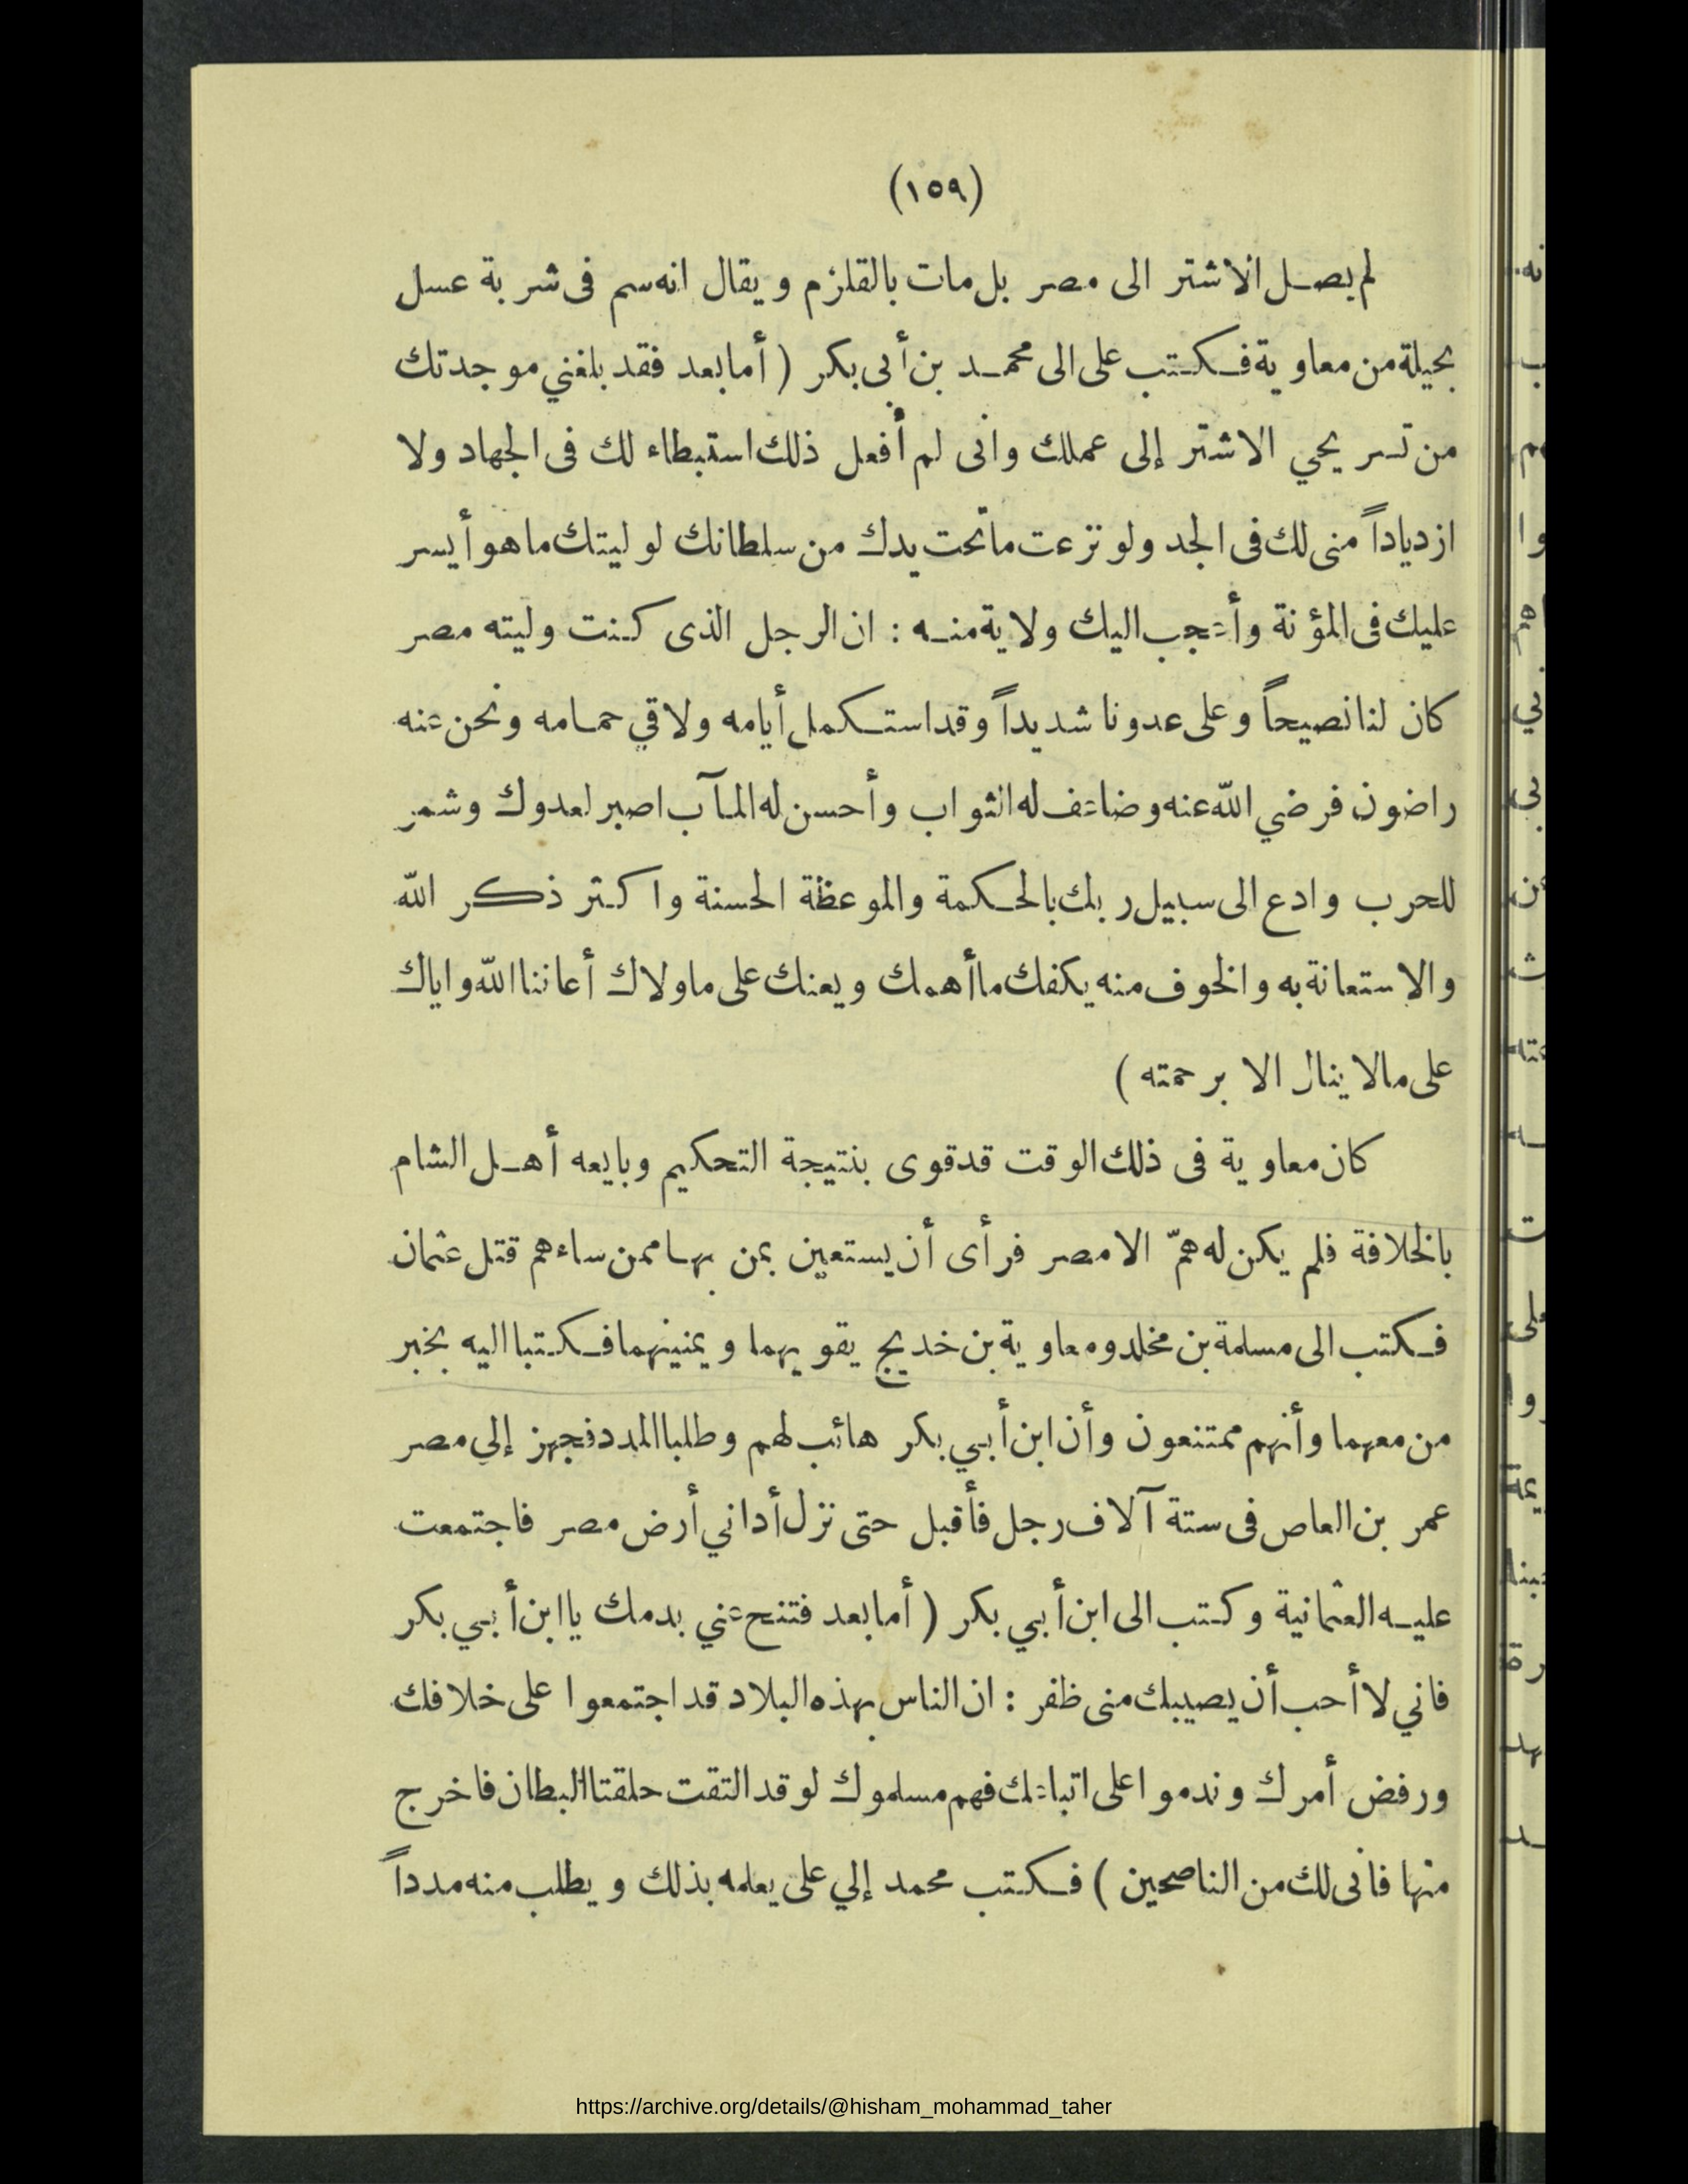 (١٥٩)
لم يصل الاشتر الى مصر بل مات بالقلزم ويقال انه سم فى شربة عسل
بحيلة من معاوية فكتب على الى محمد بن أبى بكر ( أما بعد فقد بلغني موجدتك
من تسريحي الاشتر إلى عملك وانى لم أفعل ذلك استبطاء لك فى الجهاد ولا
ازدياداً منى لك فى الجد ولو نزعت ماتحت يدك من سلطانك لوليتك ماهو أيسر
عليك فى المؤنة وأعجب اليك ولاية منه : ان الرجل الذى كنت وليته مصر
كان لنا نصيحاً وعلى عدونا شديداً وقد استكمل أيامه ولاقي حمامه ونحن عنه
راضون فرضي الله عنه وضاعف له الثواب وأحسن له المآب اصبر لعدوك وشمر
للحرب وادع الى سبيل ربك بالحكمة والموعظة الحسنة واكثر ذكر الله
والاستعانة به والخوف منه يكفك ماأهمك ويعنك على ماولاك أعاننا الله واياك
على مالا ينال الا برحمته )
كان معاوية فى ذلك الوقت قد قوى بنتيجة التحكيم وبايعه أهل الشام
بالخلافة فلم يكن له همّ الا مصر فرأى أن يستعين بمن بها ممن ساءهم قتل عثمان
فكتب الى مسلمة بن مخلد ومعاوية بن خديج يقويهما ويمنيهما فكتبا اليه بخبر
من معهما وأنهم ممتنعون وأن ابن أبي بكر هائب لهم وطلبا المدد فجهز إلي مصر
عمر بن العاص فى ستة آلاف رجل فأقبل حتى نزل أداني أرض مصر فاجتمعت
عليه العثمانية وكتب الى ابن أبي بكر ( أما بعد فتنح عني بدمك يا ابن أبي بكر
فاني لا أحب أن يصيبك منى ظفر : ان الناس بهذه البلاد قد اجتمعوا على خلافك
ورفض أمرك وندموا على اتباعك فهم مسلموك لو قد التقت حلقتا البطان فاخرج
منها فانى لك من الناصحين ) فكتب محمد إلي على يعلمه بذلك ويطلب منه مدداً
https://archive.org/details/@hisham_mohammad_taher